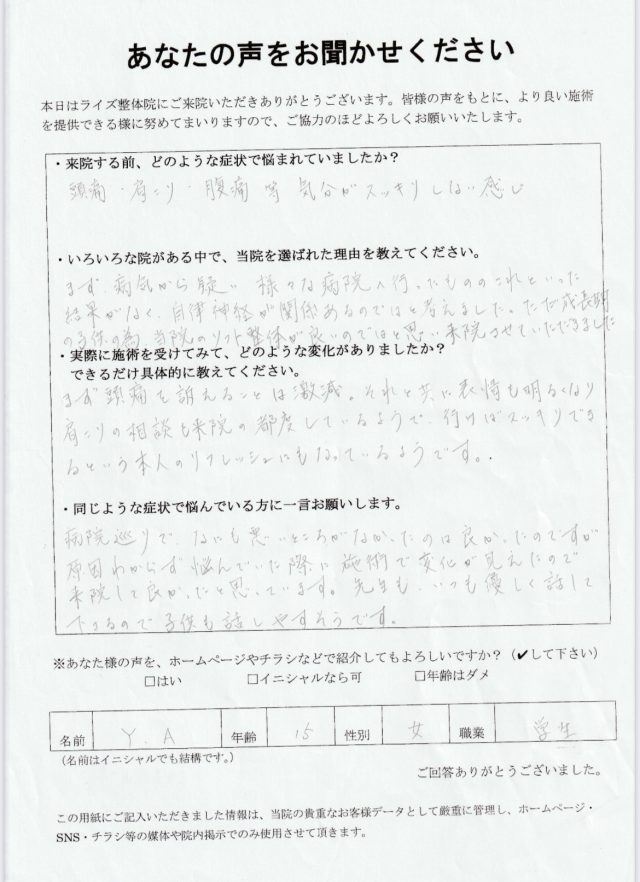 あなたの声をお聞かせください
本日はライズ整体院にご来院いただきありがとうございます。皆様の声をもとに、より良い施術
を提供できる様に努めてまいりますので、ご協力のほどよろしくお願いいたします。
・来院する前、どのような症状で悩まれていましたか？
頭痛・肩こり・腹痛 等 気分がスッキリしない感じ
・いろいろな院がある中で、当院を選ばれた理由を教えてください。
まず、病気から疑い 様々な病院へ行ったもののこれといった
結果がなく、自律神経が関係あるのではと考えました。ただ成長期
の子供の為 当院のソフト整体が良いのではと思い来院させていただきました
・実際に施術を受けてみて、どのような変化がありましたか？
できるだけ具体的に教えてください。
まず頭痛を訴えることは激減。それと共に表情も明るくなり
肩こりの相談も来院の都度しているようで、行けばスッキリでき
るという本人のリフレッシュにもなっているようです。
・同じような症状で悩んでいる方に一言お願いします。
病院巡りで、なにも悪いところがなかったのは良かったのですが
原因わからず悩んでいた際に施術で変化が見えたので
来院して良かったと思っています。先生も、いつも優しく話して
下さるので子供も話しやすそうです。
※あなた様の声を、ホームページやチラシなどで紹介してもよろしいですか？（✔して下さい）
□はい □イニシャルなら可 □年齢はダメ
名前 Y.A 年齢 15 性別 女 職業 学生
（名前はイニシャルでも結構です。）
ご回答ありがとうございました。
この用紙にご記入いただきました情報は、当院の貴重なお客様データとして厳重に管理し、ホームページ・
SNS・チラシ等の媒体や院内掲示でのみ使用させて頂きます。